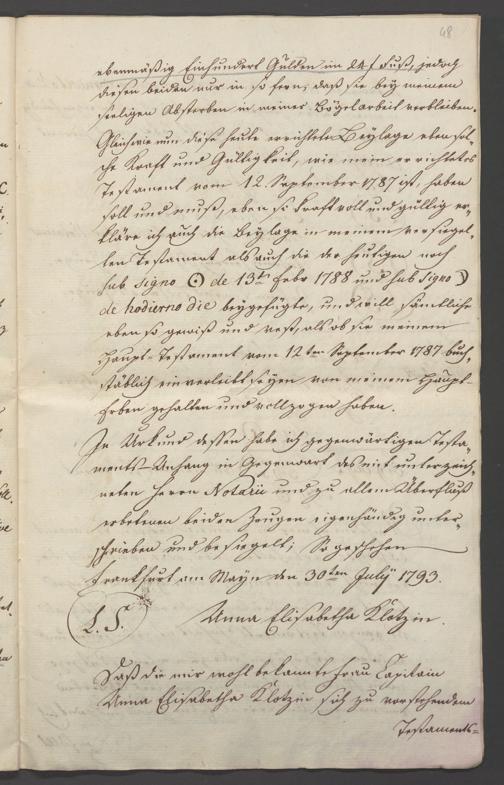 48
ebenmäßig Einhundert Gulden im 24 f Fuß, jedoch
diesen beiden nur in so fern, daß sie bey meinem
seeligen Absterben in meiner Bögelarbeit verbleiben.
Gleichwie nun diese heute errichtete Beylage eben sol-
che Kraft und Gültigkeit, wie mein errichtetes
Testament vom 12. September 1787 ist, haben
soll und muß, eben so kraftvoll und gültig er-
kläre ich auch die Beylage in meinem versiegel-
ten Testament als auch die der heutigen noch
sub signo ⊙ de 13t Febr 1788 und sub Signo ☽
de hodierno die beygefügte, und will sämtliche
eben so gewiß und vest, als ob sie meinem
Haupt-Testament vom 12ten September 1787 buch-
stäblich einverleibt seyen von meinem Haupt-
Erben gehalten und vollzogen haben.
In Urkund dessen habe ich gegenwärtigen Testa-
ments-Anhang in Gegenwart des mit unterzeich-
neten Herrn Notarii und zu allem Überfluß
erbetenen beiden Zeugen eigenhändig unter-
schrieben und besiegelt; So geschehen
Frankfurt am Mayn den 30ten July 1793.
L. S. Anna Elisabetha Klotzin.
Daß die mir wohl bekannte Frau Capitain
Anna Elisabetha Klotzin sich zu vorstehendem
Testaments-